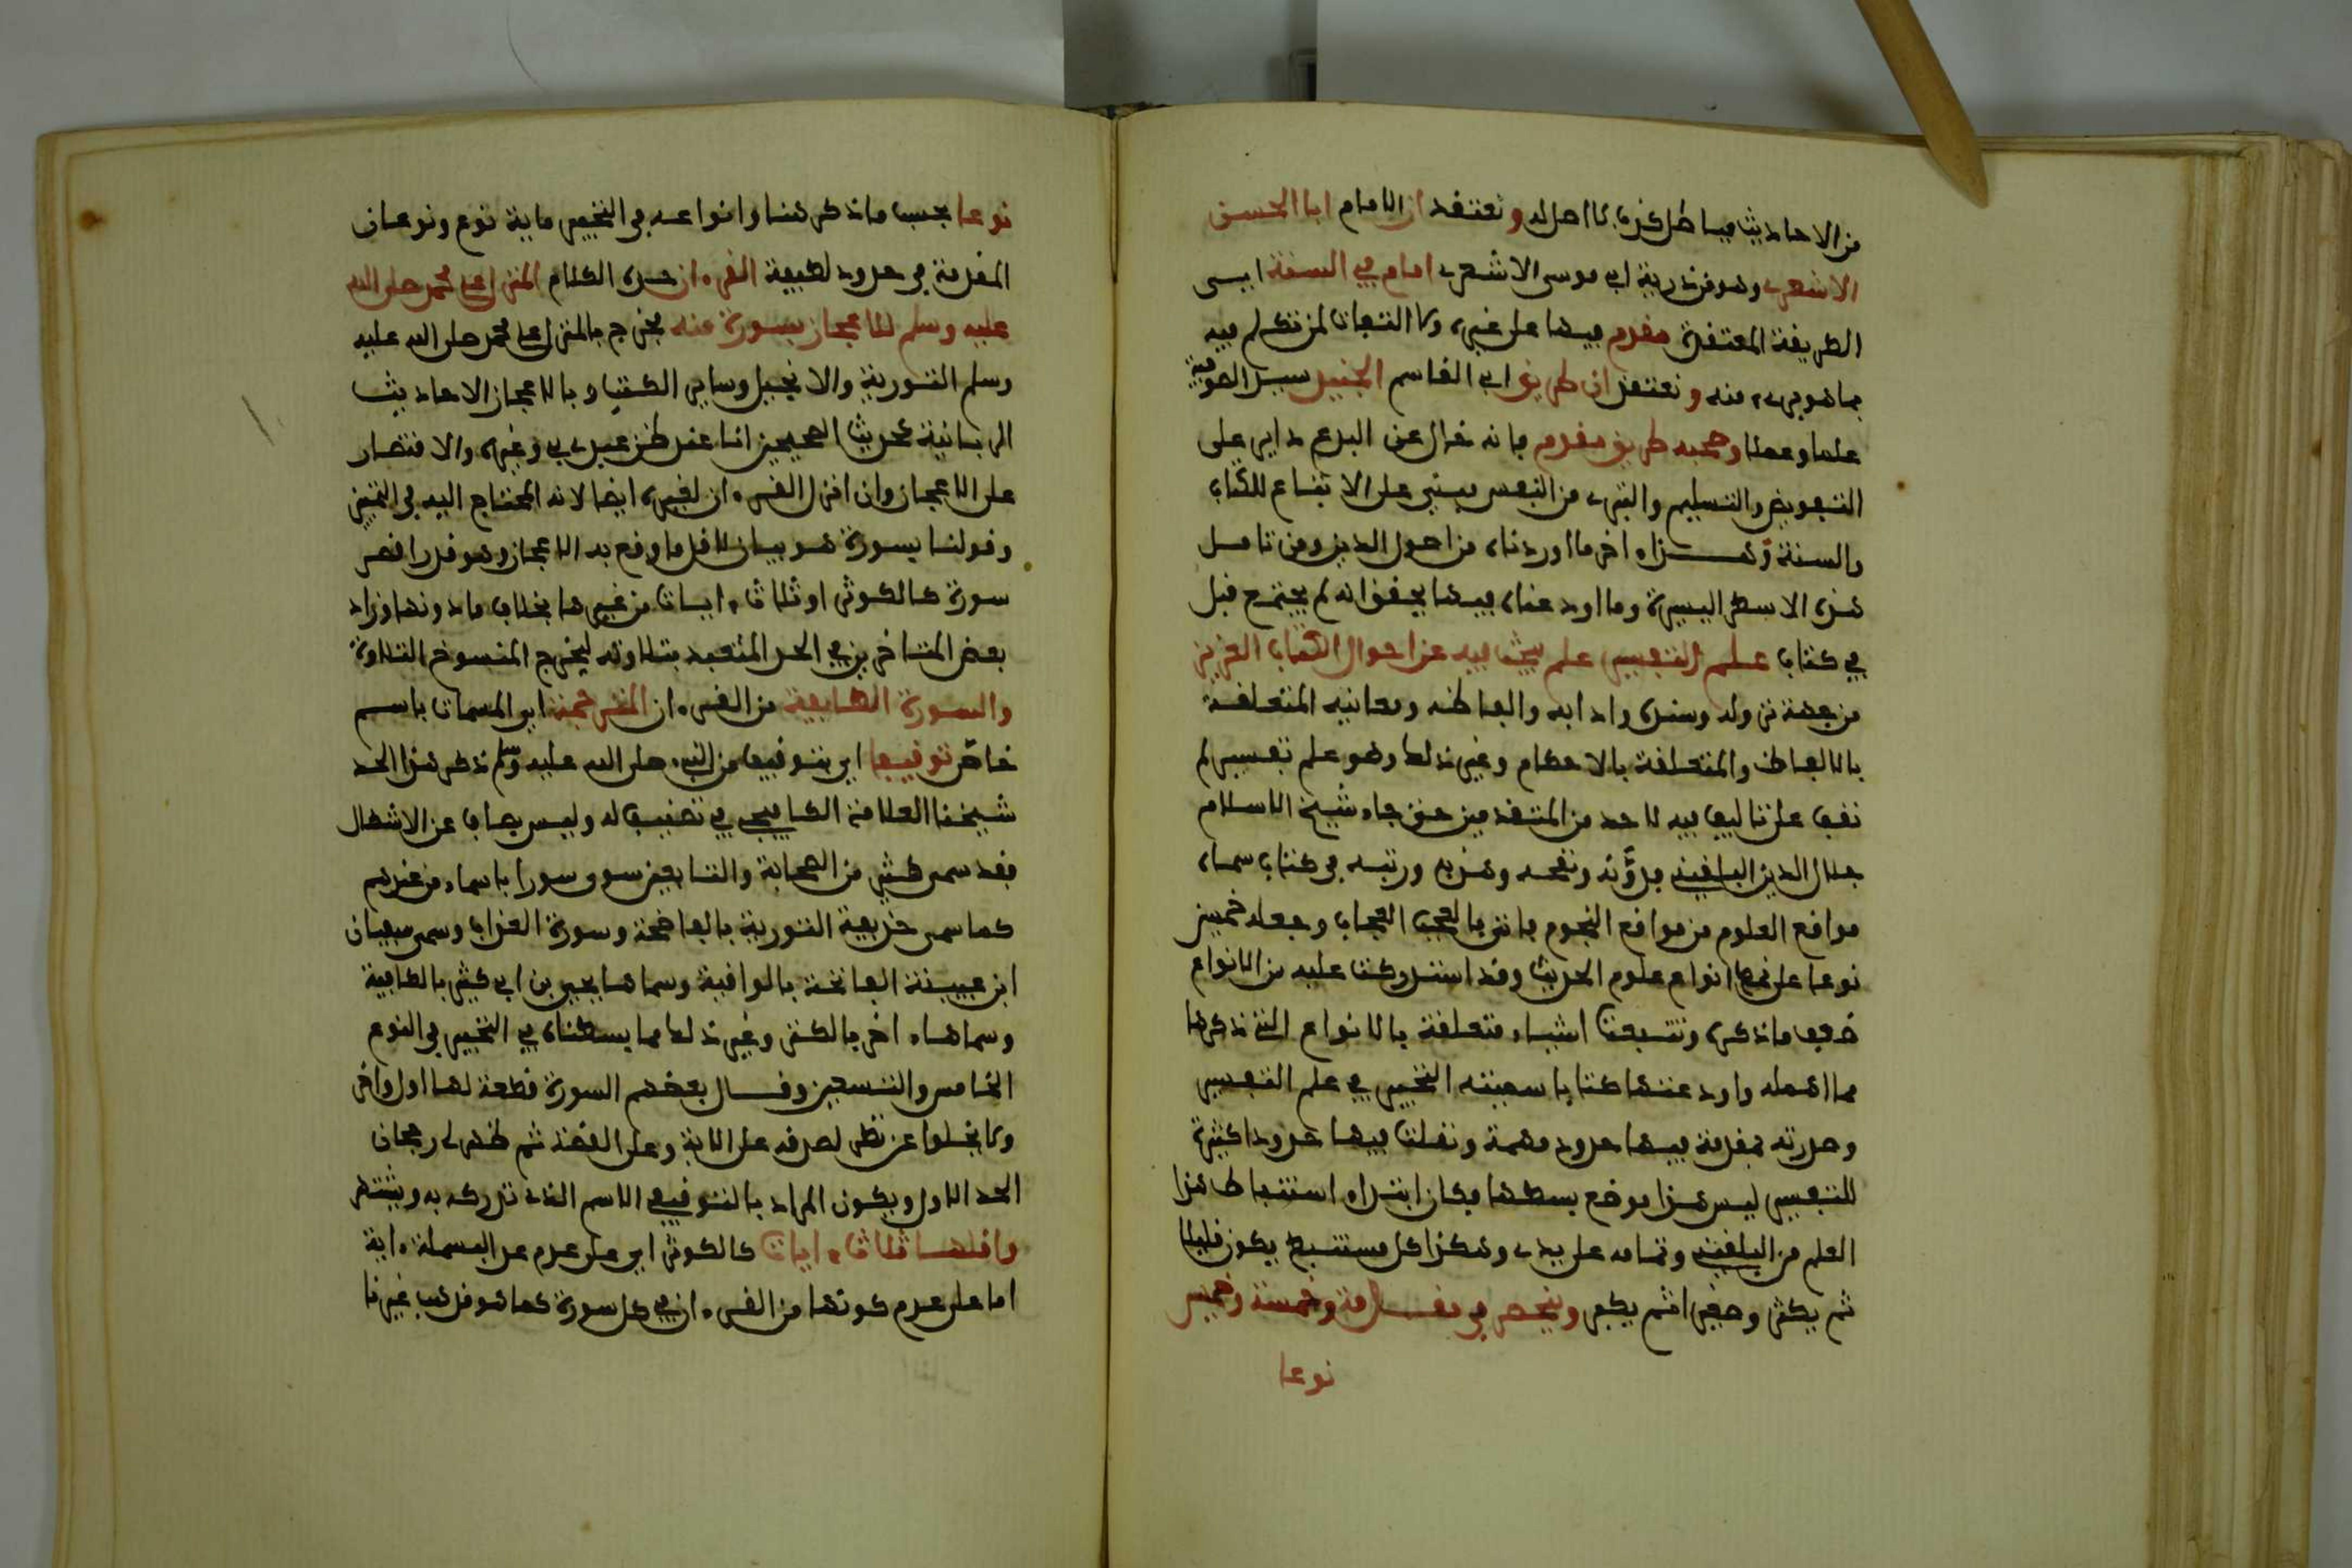 من الاحاديث فباطل كذب لا اصل له ونعتقد ان الامام ابا الحسن
الاشعري وهو من ذرية ابي موسى الاشعري امام في السنة اي في
الطريقة المعتقدة مقدم فيها على غيره ولا التفات لمن تكلم فيه
بما هو بريء منه ونعتقد ان طريق ابي القاسم الجنيد سيد الصوفية
علما وعملا وصحبه طريق مقدم فانه خال عن البدع داير على
التفويض والتسليم والتبري من النفس مبني على الاتباع للكتاب
والسنة وهذا اخر ما اوردناه من اصول الدين ومن تامل
هذه الاسطر اليسيرة وما اودعناه فيها يحقق انه لم يجتمع قبل
في كتاب علم التفسير علم يبحث فيه عن احوال الكتاب العزيز
من جهة نزوله وسنده وادابه والفاظه ومعانيه المتعلقة
بالالفاظ والمتعلقة بالاحكام وغير ذلك وهو علم نفيس لم
نقف على تاليف فيه لاحد من المتقدمين حتى جاء شيخ الاسلام
جلال الدين البلقيني فدونه ونقحه وهذبه ورتبه في كتاب سماه
مواقع العلوم من مواقع النجوم فاتى بالعجب العجاب وجعله خمسين
نوعا على نمط انواع علوم الحديث وقد استدركت عليه من الانواع
ضعف ما ذكره وتتبعت اشياء متعلقة بالانواع التي ذكرها
مما اهمله واودعتها كتابا سميته التحبير في علم التفسير
وصدرته بمقدمة فيها حدود مهمة ونقلت فيها حدودا كثيرة
للتفسير ليس هذا موضع بسطها فكان ابتداء استنباط هذا
العلم من البلقيني وتمامه على يدي وهكذا كل مستنبط يكون قليلا
ثم يكثر وصغيرا ثم يكبر وينحصر في مقدمة وخمسة وخمسين
نوعا
نوعا بحسب ما ذكر هنا وانواعه في التحبير ماية نوع ونوعان
المقدمة في حدود لطيفة القرءان حده الكلام المنزل على محمد صلى الله
عليه وسلم للاعجاز بسورة منه فخرج بالمنزل على محمد صلى الله عليه
وسلم التورية والانجيل وساير الكتب وبالاعجاز الاحاديث
الربانية كحديث الصحيحين انا عند ظن عبدي بي وغيره والاقتصار
على الاعجاز وان انزل القرءان لغيره ايضا لانه المحتاج اليه في التمييز
وقولنا بسورة هو بيان لاقل ما وقع به الاعجاز وهو قدر اقصر
سورة كالكوثر او ثلاث ءايات من غيرها بخلاف ما دونها وزاد
بعض المتاخرين في الحد المتعبد بتلاوته ليخرج المنسوخ التلاوة
والسورة الطايفة من القرءان المترجمة اي المسمات باسم
خاص توقيفا اي بتوقيف من النبي صلى الله عليه وسلم ذكر هذا الحد
شيخنا العلامة الكافيجي في تصنيف له وليس بصاف عن الاشكال
فقد سمى كثير من الصحابة والتابعين سوى سورا باسماء من عندهم
كما سمى حذيفة التوربة بالفاضحة وسورة العذاب وسمى سفيان
ابن عيينة الفاتحة بالوافية وسماها يحيى بن ابي كثير بالكافية
وسماها ءاخر بالكنز وغير ذلك مما بسطناه في التحبير في النوع
الخامس والتسعين وقال بعضهم السورة قطعة لها اول واخر
ولا يخلوا عن نظر لصدقه على الاية وعلى القصة ثم ظهر لي رجحان
الحد الاول ويكون المراد بالتوقيفي الاسم الذي تذكر به وتشتهر
واقلها ثلاث ءايات كالكوثر اي على عدم عد البسملة ءاية
اما على عدم كونها من القرءان في كل سورة كما هو مذهب غيرنا